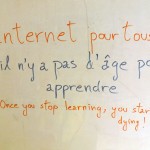 internet pour tous
il n'y a pas d'âge po
apprendre
Once you stop learning, you star
dying!